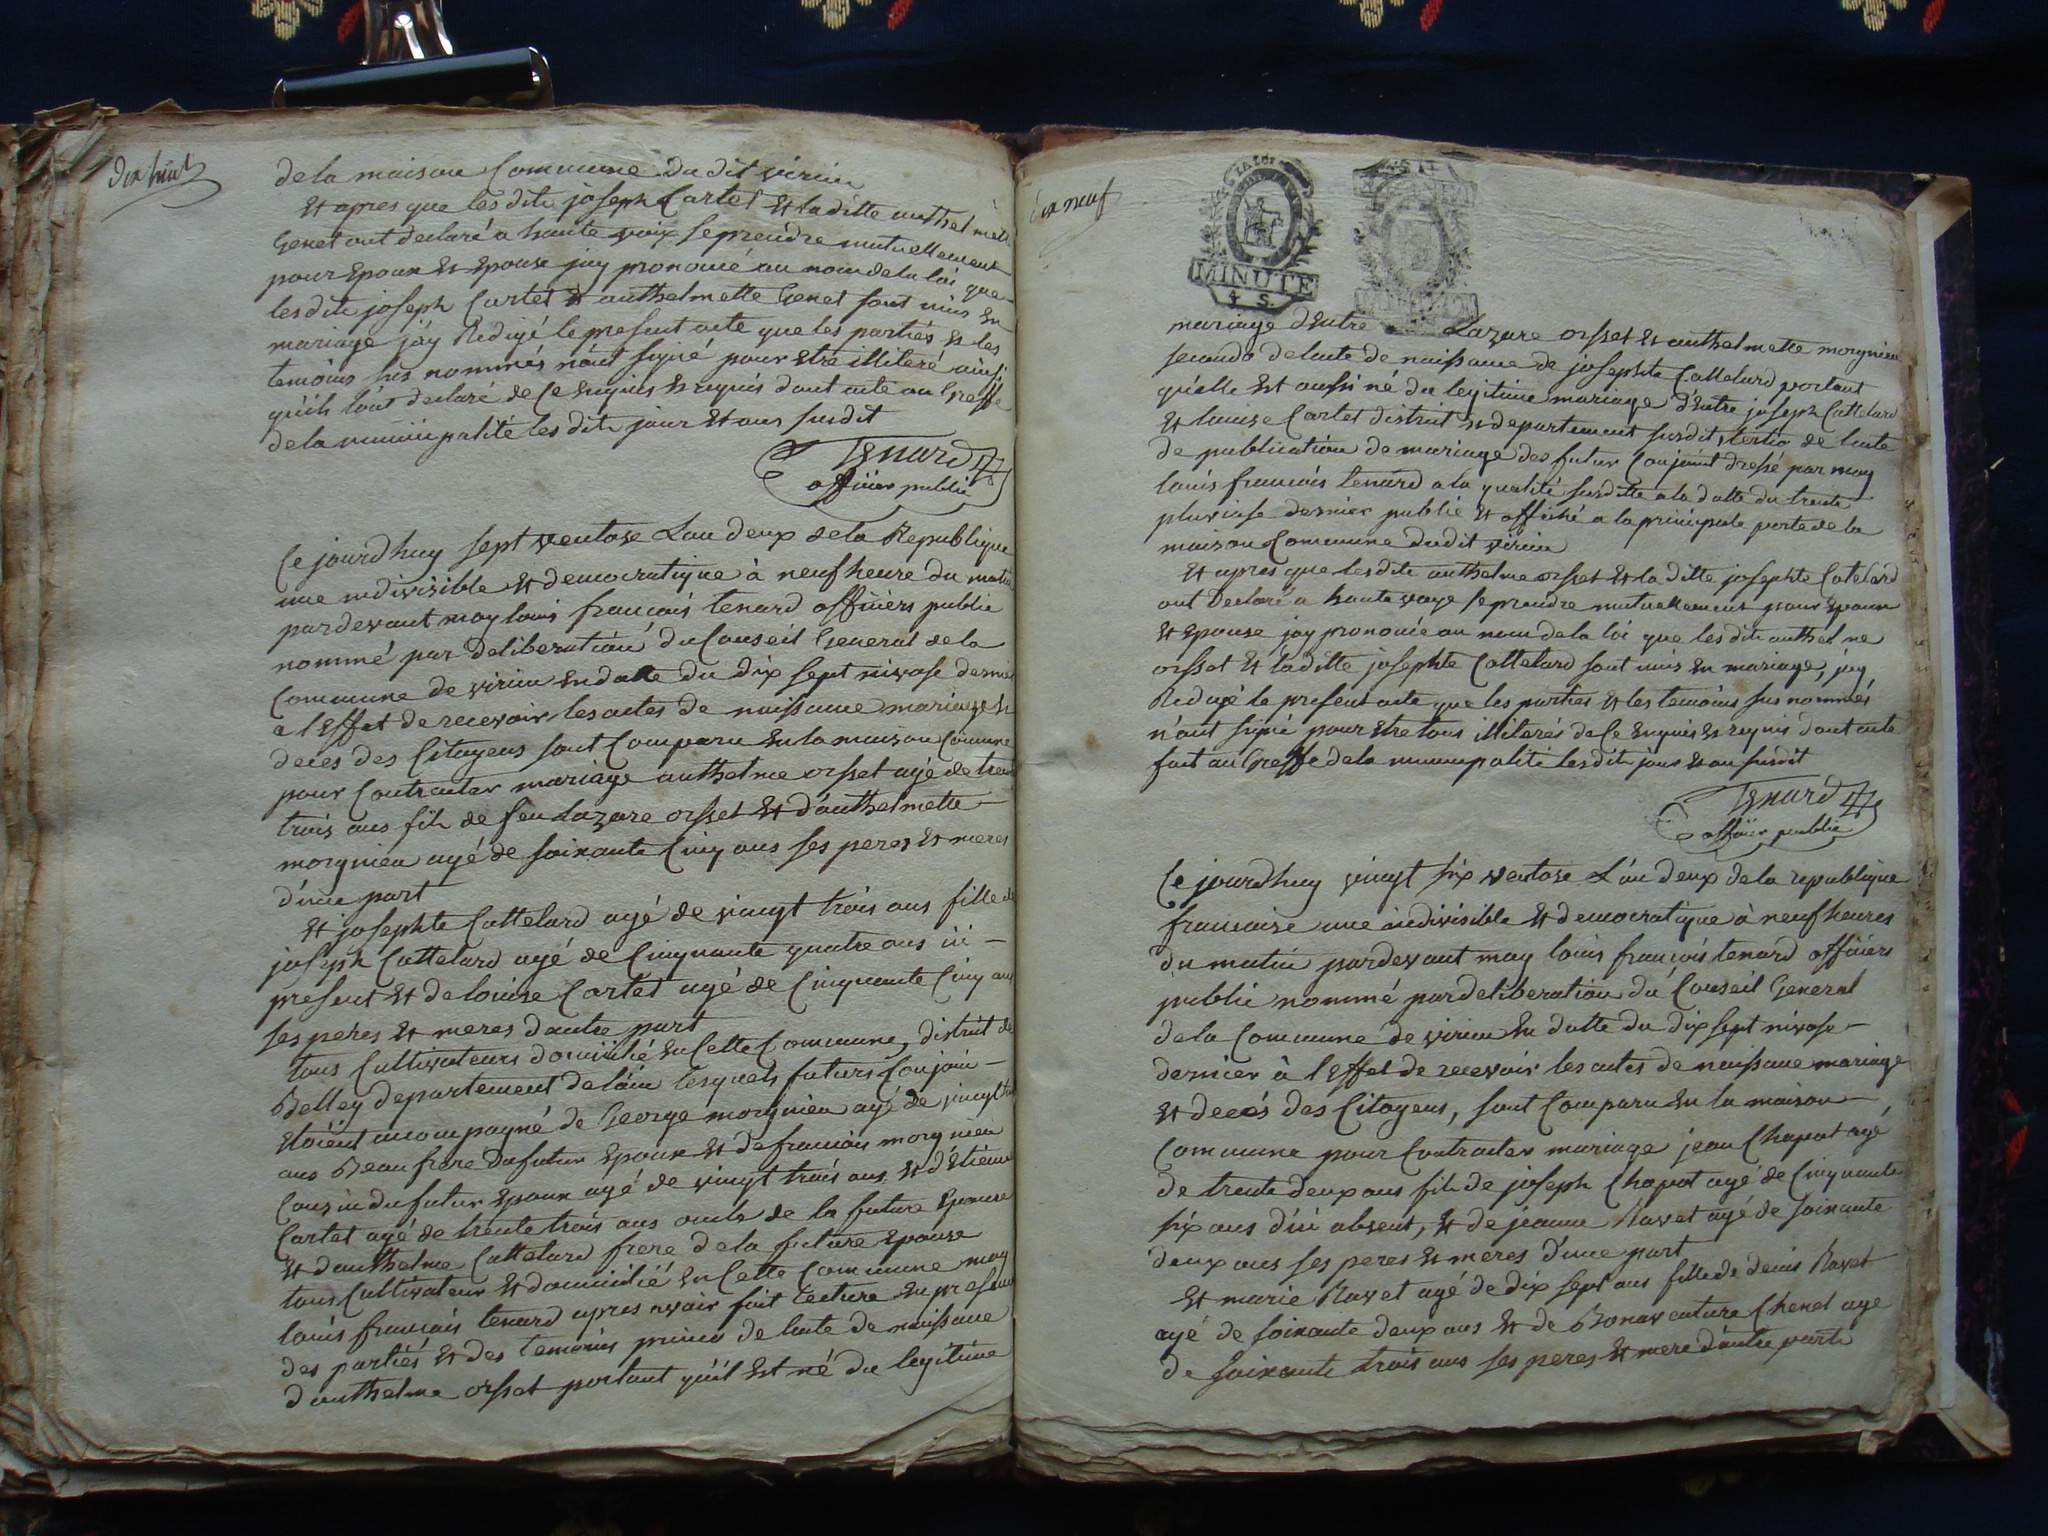 dix huit
de la maison Commune du dit virieu
Et apres que les dits joseph Cartet Et la ditte anthelmette
Genet ont declaré a haute voix se prendre mutuellement
pour Epoux Et Epouse jay prononcé au nom de la loi que
les dits joseph Cartet Et anthelmette Genet sont unis En
mariage j'ay Redigé le present acte que les partiés Et les
temoins sus nommés n'ont signé pour Etre illiteré ainsi
qu'ils l'ont declaré de Ce Enquis Et requis dont acte au Greffe
de la municipalité les dits jour Et ans susdit
Tenard
officier public
Ce jourdhuy sept ventose L'an deux de la Republique
une indivisible Et democratique à neuf heure du matin
pardevant moy louis francois tenard officiers public
nommé par deliberation du Conseil General de la
Commune de virieu En datte du dix sept nivose dernier
a l'Effet de recevoir les actes de naissance mariage Et
deces des Citoyens sont Comparu En la maison Commune
pour Contracter mariage anthelme orsset agé de trente
trois ans fils de feu Lazare orsset Et d'anthelmette
morgnieu agé de soixante Cinq ans ses peres Et meres
d'une part
Et josephte Cattelard agé de vingt trois ans fille de
joseph Cattelard agé de Cinquante quatre ans ici
present Et de louise Cartet agé de Cinquante Cinq ans
ses peres Et meres dautre part
tous Cultivateurs domicilié En Cette Commune, district de
Belley departement de l'ain lesquels futurs Conjoin
Etoient accompagné de George morgnieu agé de vingt
ans Beau frere du futur Epoux Et de francois morgnieu
Cousin du futur Epoux agé de vingt trois ans Et d'Etienne
Cartet agé de trente trois ans oncle de la future Epouse
Et d'anthelme Cattelard frere de la future Epouse
tous Cultivateur Et domicilié En Cette Commune moy
louis francois tenard apres avoir fait lecture En presence
des partiés Et des temoins primo de lacte de naissance
d'anthelme orsset portant qu'il Est né du legitime
dix neuf
MINUTE
4 S.
mariage d'Entre Lazare orsset Et anthelmette morgnieu
secundo de lacte de naissance de josephte Cattelard portant
qu'elle Est aussi né du legitime mariage d'Entre joseph Cattelard
Et louise Cartet district Et departement susdit, tertio de lacte
de publication de mariage des futur Conjoint dressé par moy
louis francois tenard a la qualité susditte a la datte du trente
pluviose dernier publié Et affiché a la principale porte de la
maison Commune du dit virieu
Et apres que les dits anthelme orsset Et la ditte josephte Catelard
ont Declaré a haute voye se prendre mutuellement pour Epoux
Et Epouse jay prononcée au nom de la loi que les dits anthelme
orsset Et la ditte josephte Cattelard sont unis En mariage, jay
Redigé le present acte que les parties Et les temoins sus nommés
n'ont signé pour Etre tous illiterés de Ce Enquis Et requis dont acte
fait au Greffe de la municipalité les dits jour Et an susdit
Tenard
officier public
Ce jourdhuy vingt six ventose L'an deux de la republique
francaise une indivisible Et democratique à neuf heures
du matin pardevant moy louis francois tenard officiers
public nommé par deliberation du Conseil General
de la Commune de virieu En datte du dix sept nivose
dernier à l'Effet de recevoir les actes de naissance mariage
Et decés des Citoyens, sont Comparu En la maison
Commune pour Contracter mariage jean Chapot agé
de trente deux ans fils de joseph Chapot agé de Cinquante
six ans d'ici absent, Et de jeanne Ravet agé de soixante
deux ans ses peres Et meres d'une part
Et marie Ravet agé de dix sept ans fille de denis Ravet
agé de soixante deux ans Et de Bonaventure Chenet agé
de soixante trois ans ses peres Et mere d'autre parte